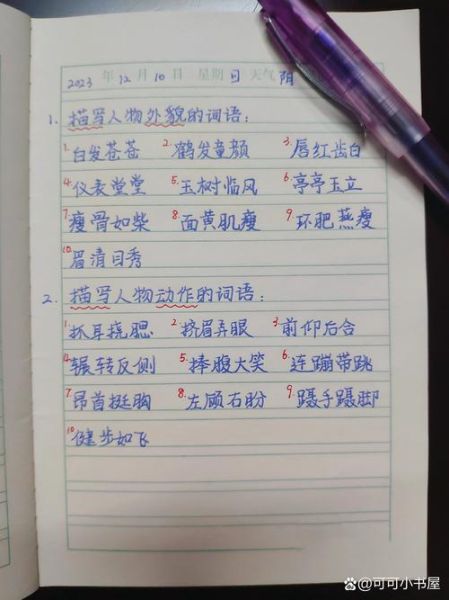 2023 年 12 月 10 日 星期 日 天气 阴
1. 描写人物外貌的词语：
1. 白发苍苍 2. 鹤发童颜 3. 唇红齿白
4. 仪表堂堂 5. 玉树临风 6. 亭亭玉立
7. 瘦骨如柴 8. 面黄肌瘦 9. 环肥燕瘦
10. 眉清目秀
2. 描写人物动作的词语：
1. 抓耳挠腮 2. 挤眉弄眼 3. 前仰后合
4. 辗转反侧 5. 捧腹大笑 6. 连蹦带跳
7. 昂首挺胸 8. 左顾右盼 9. 蹑手蹑脚
10. 健步如飞
@可可小书屋